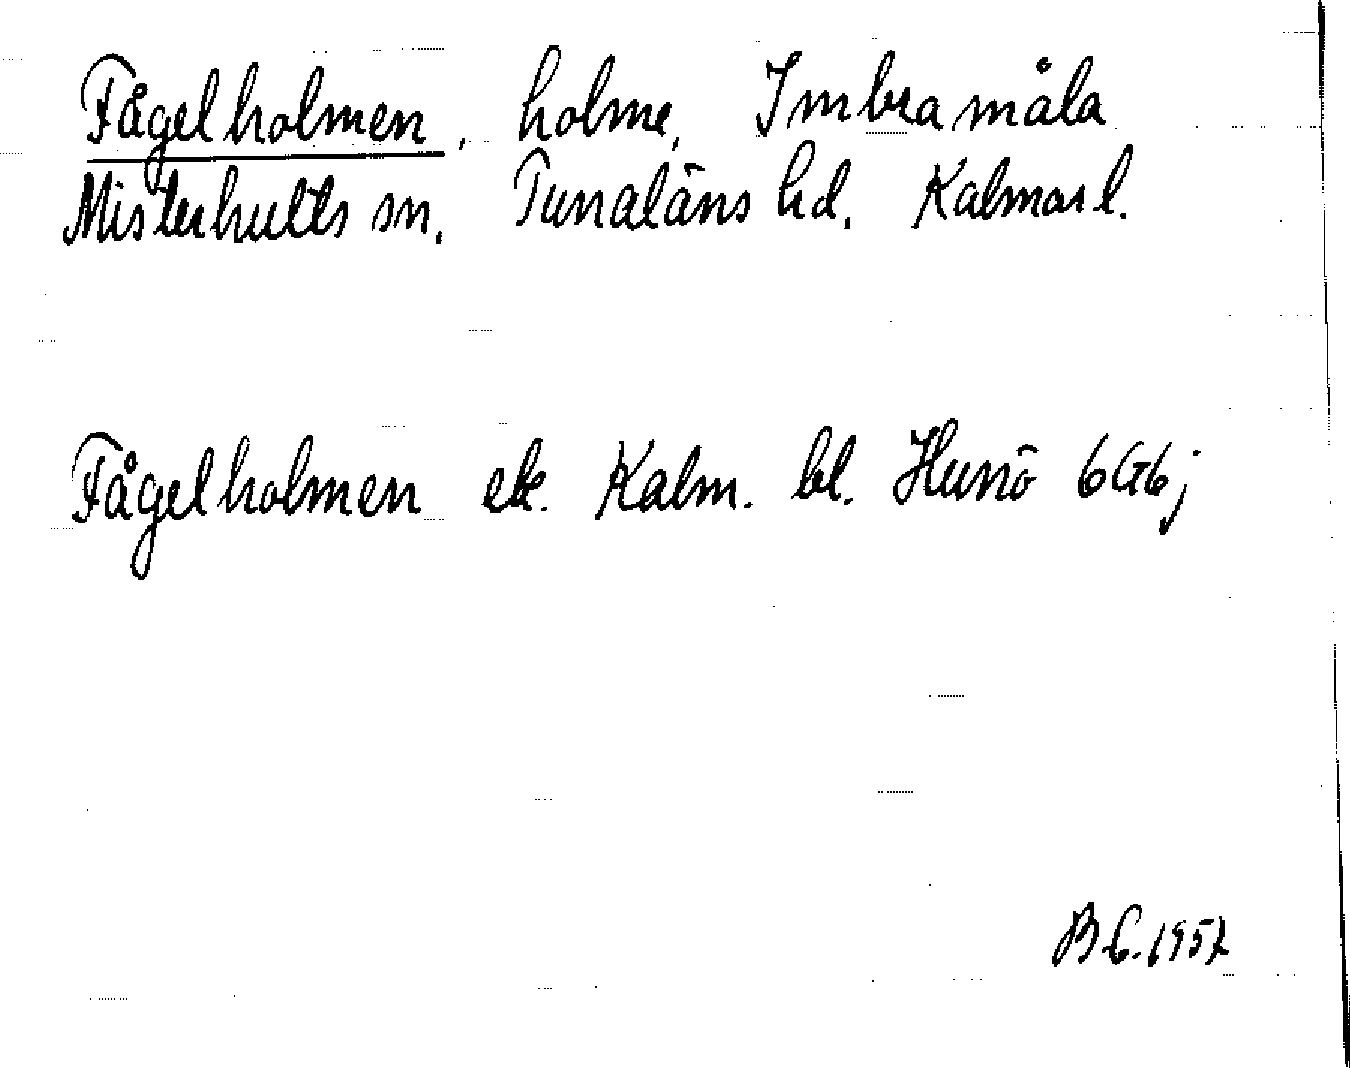 Fågelholmen, holme, Imbramåla
Misterhults sn. Tunaläns hd. Kalmar l.
Fågelholmen ek. Kalm. bl. Hunö 6G6j
B.C. 1957